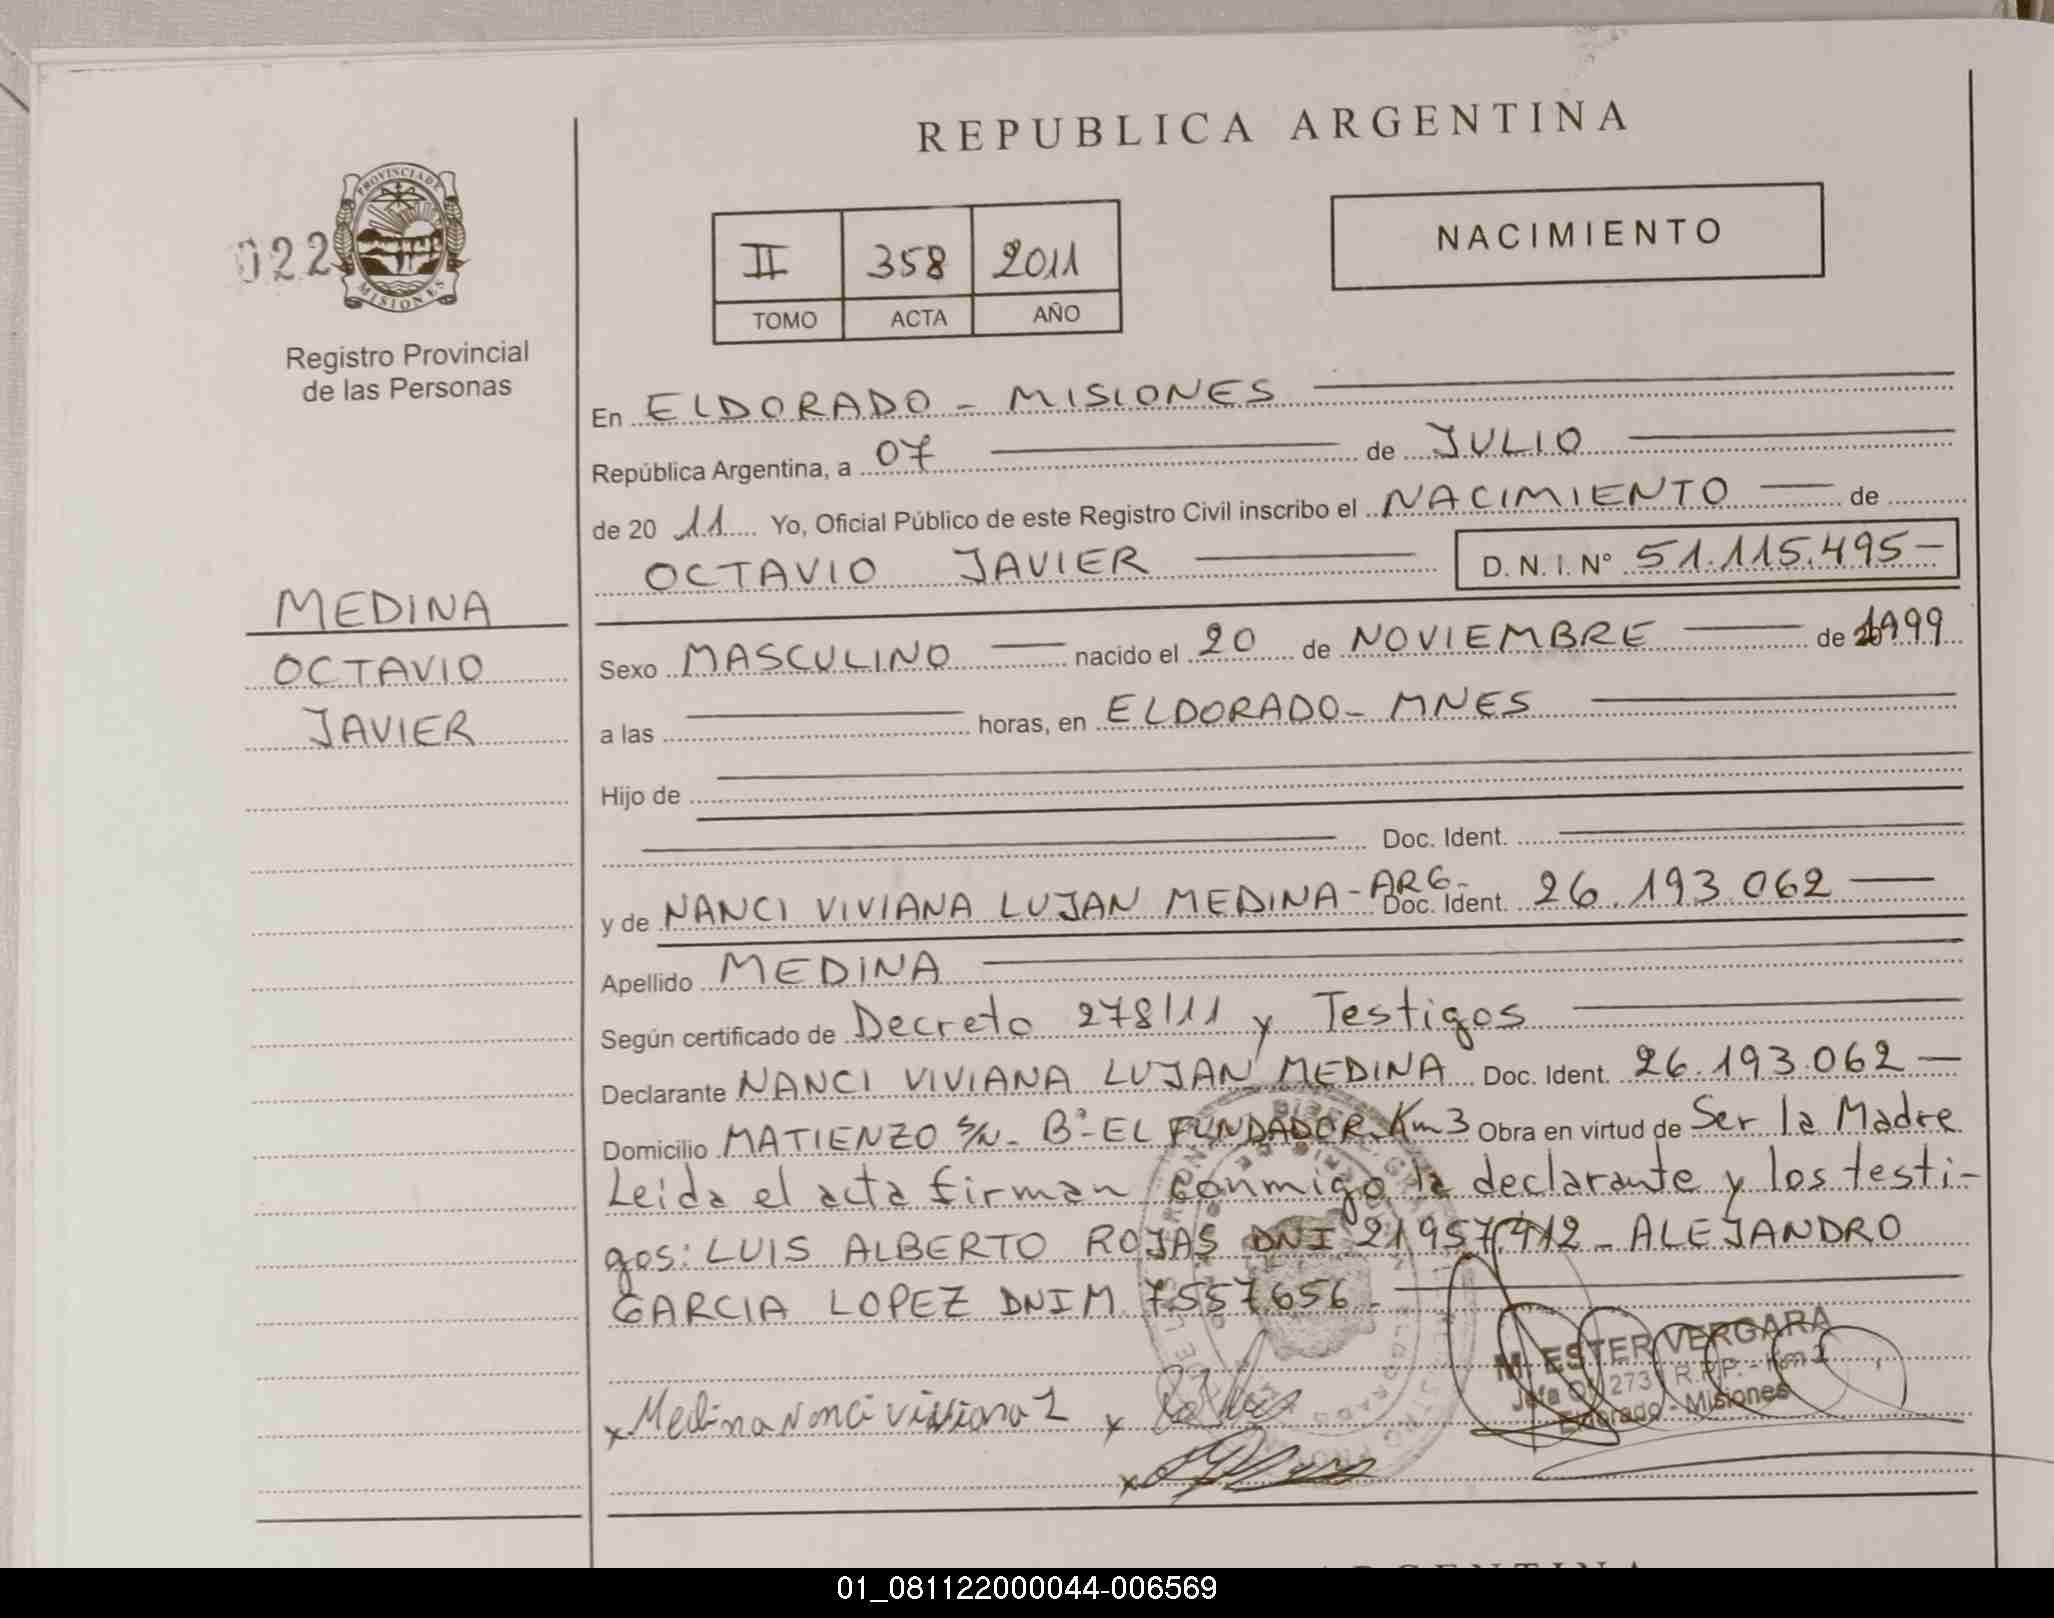 REPUBLICA ARGENTINA
022
PROVINCIA DE
MISIONES
Registro Provincial
de las Personas
II 358 2011
TOMO ACTA AÑO
NACIMIENTO
En ELDORADO - MISIONES
República Argentina, a 07 de JULIO
de 20 11 Yo, Oficial Público de este Registro Civil inscribo el NACIMIENTO de
OCTAVIO JAVIER D.N.I. Nº 51.115.495-
MEDINA
OCTAVIO
JAVIER
Sexo MASCULINO nacido el 20 de NOVIEMBRE de 1999
a las horas, en ELDORADO - MNES
Hijo de
Doc. Ident.
y de NANCI VIVIANA LUJAN MEDINA - ARG- Doc. Ident. 26.193.062
Apellido MEDINA
Según certificado de Decreto 278/11 y Testigos
Declarante NANCI VIVIANA LUJAN MEDINA Doc. Ident. 26.193.062
Domicilio MATIENZO S/N- Bº-EL FUNDADOR-Km3 Obra en virtud de Ser la Madre
Leida el acta firman conmigo la declarante y los testi-
gos: LUIS ALBERTO ROJAS DNI 21957.412 - ALEJANDRO
GARCIA LOPEZ DNIM 7557656-
M. ESTER VERGARA
Jefa Of. 273 R.P.P. - Km 2
Eldorado - Misiones
x Medina Nanci viviana L x
x
01_081122000044-006569